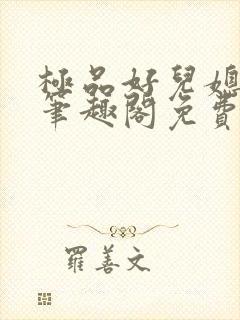 極品好兒媳
筆趣閣免費
羅善文